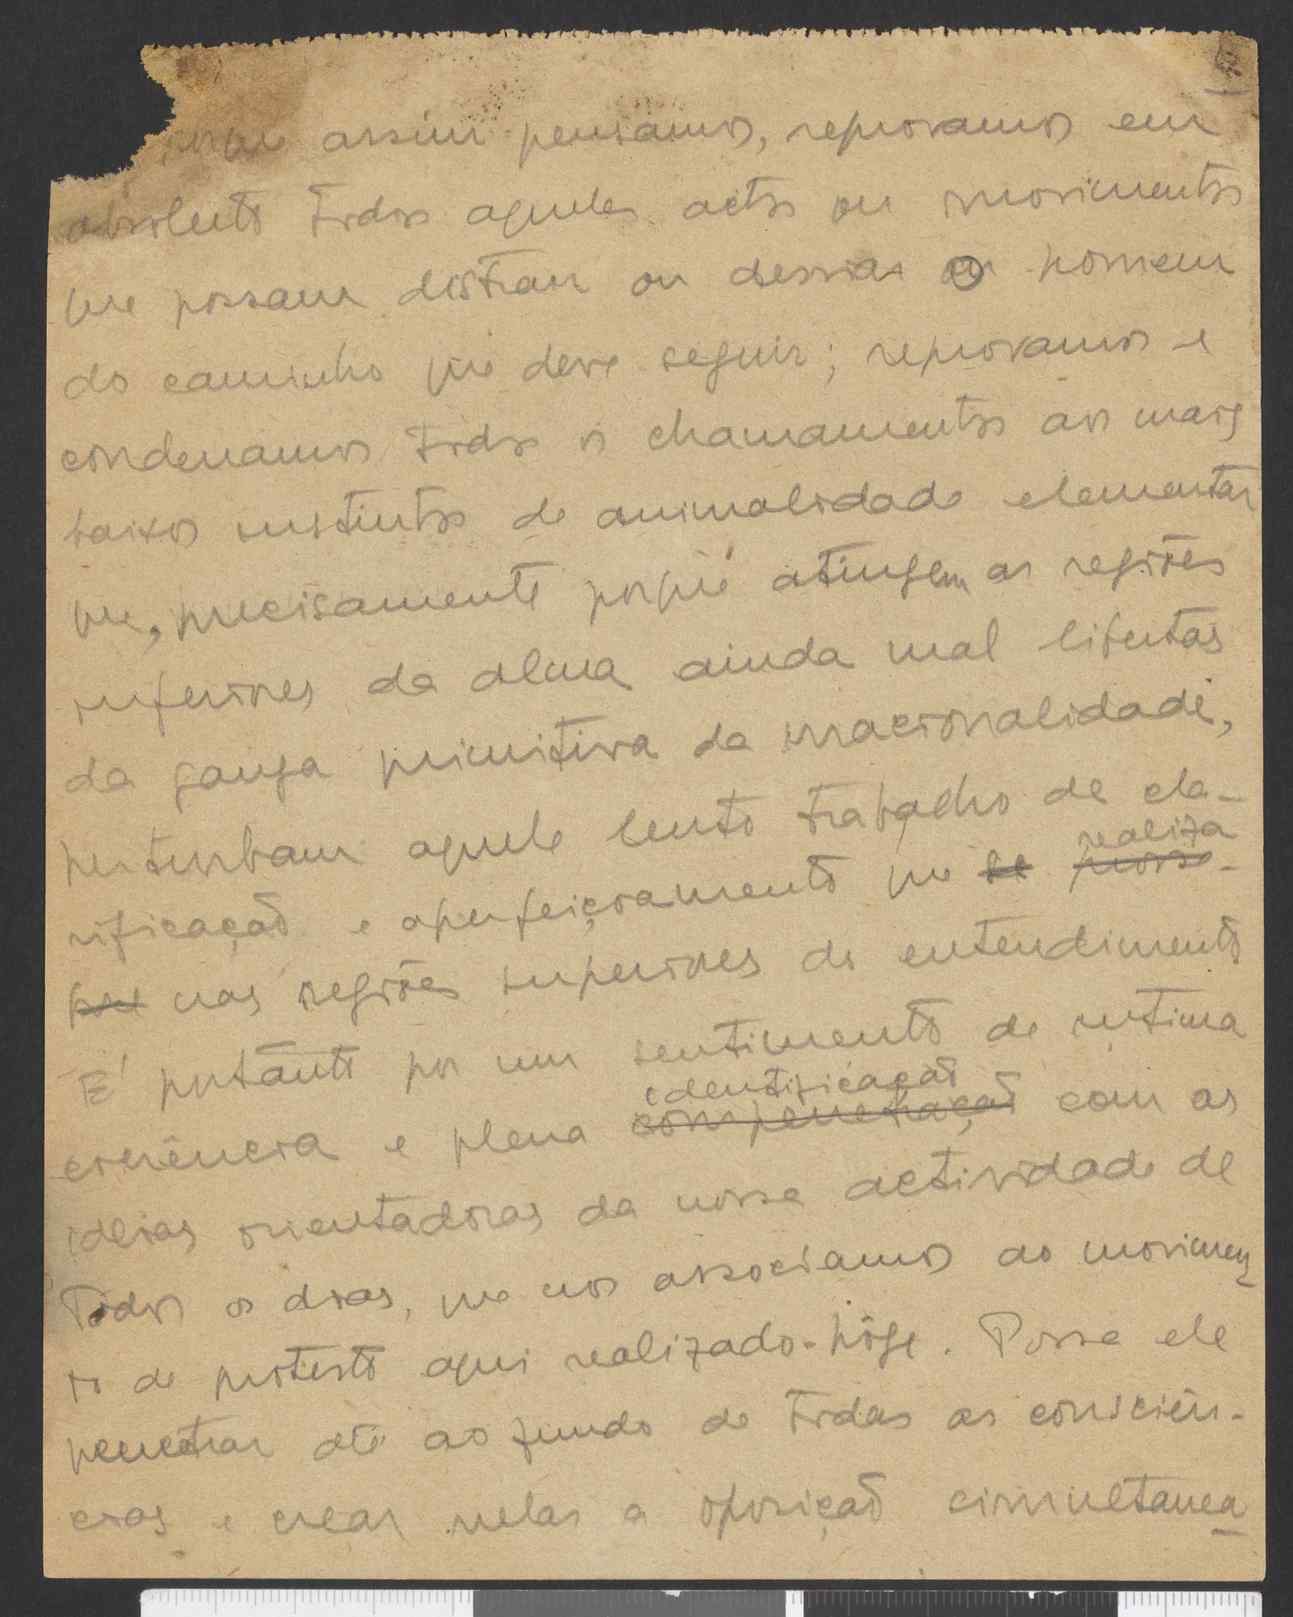 porque assim pensamos, reprovamos em
absoluto todos aqueles actos ou movimentos
que possam distrair ou desviar o homem
do caminho que deve seguir; reprovamos e
condenamos todos os chamamentos aos mais
baixos instintos de animalidade elementar
que, precisamente porque atingem as regiões
inferiores da alma ainda mal libertas
da ganga primitiva da irracionalidade,
perturbam aquele lento trabalho de cla-
realiza
rificação e aperfeiçoamento que se prosse-
gue nas regiões superiores do entendimento
É portanto por um sentimento de intima
identificação
coerência e plena compenetração com as
ideias orientadoras da nossa actividade de
Todos os dias, que nos associamos ao movimen
to de protesto aqui realizado hoje. Possa ele
penetrar até ao fundo de todas as consciên-
cias e crear nelas a oposição simultanea